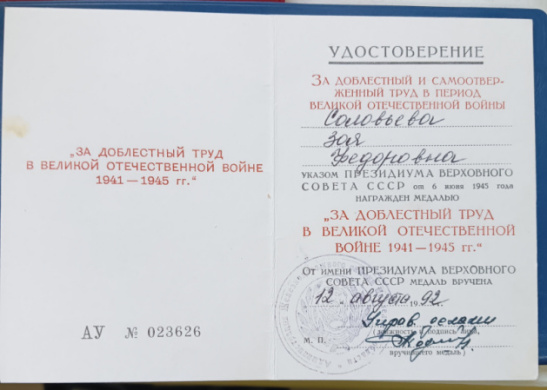 „ЗА ДОБЛЕСТНЫЙ ТРУД
В ВЕЛИКОЙ ОТЕЧЕСТВЕННОЙ ВОЙНЕ
1941 — 1945 гг.“
АУ № 023626
УДОСТОВЕРЕНИЕ
ЗА ДОБЛЕСТНЫЙ И САМООТВЕР-
ЖЕННЫЙ ТРУД В ПЕРИОД
ВЕЛИКОЙ ОТЕЧЕСТВЕННОЙ ВОЙНЫ
Соловьева
Зоя
Федоровна
УКАЗОМ ПРЕЗИДИУМА ВЕРХОВНОГО
СОВЕТА СССР от 6 июня 1945 года
НАГРАЖДЕН МЕДАЛЬЮ
„ЗА ДОБЛЕСТНЫЙ ТРУД
В ВЕЛИКОЙ ОТЕЧЕСТВЕННОЙ
ВОЙНЕ 1941—1945 гг.“
От имени ПРЕЗИДИУМА ВЕРХОВНОГО
СОВЕТА СССР МЕДАЛЬ ВРУЧЕНА
12 августа 1992 г.
(должность и подпись лица,
М. П.
вручившего медаль)